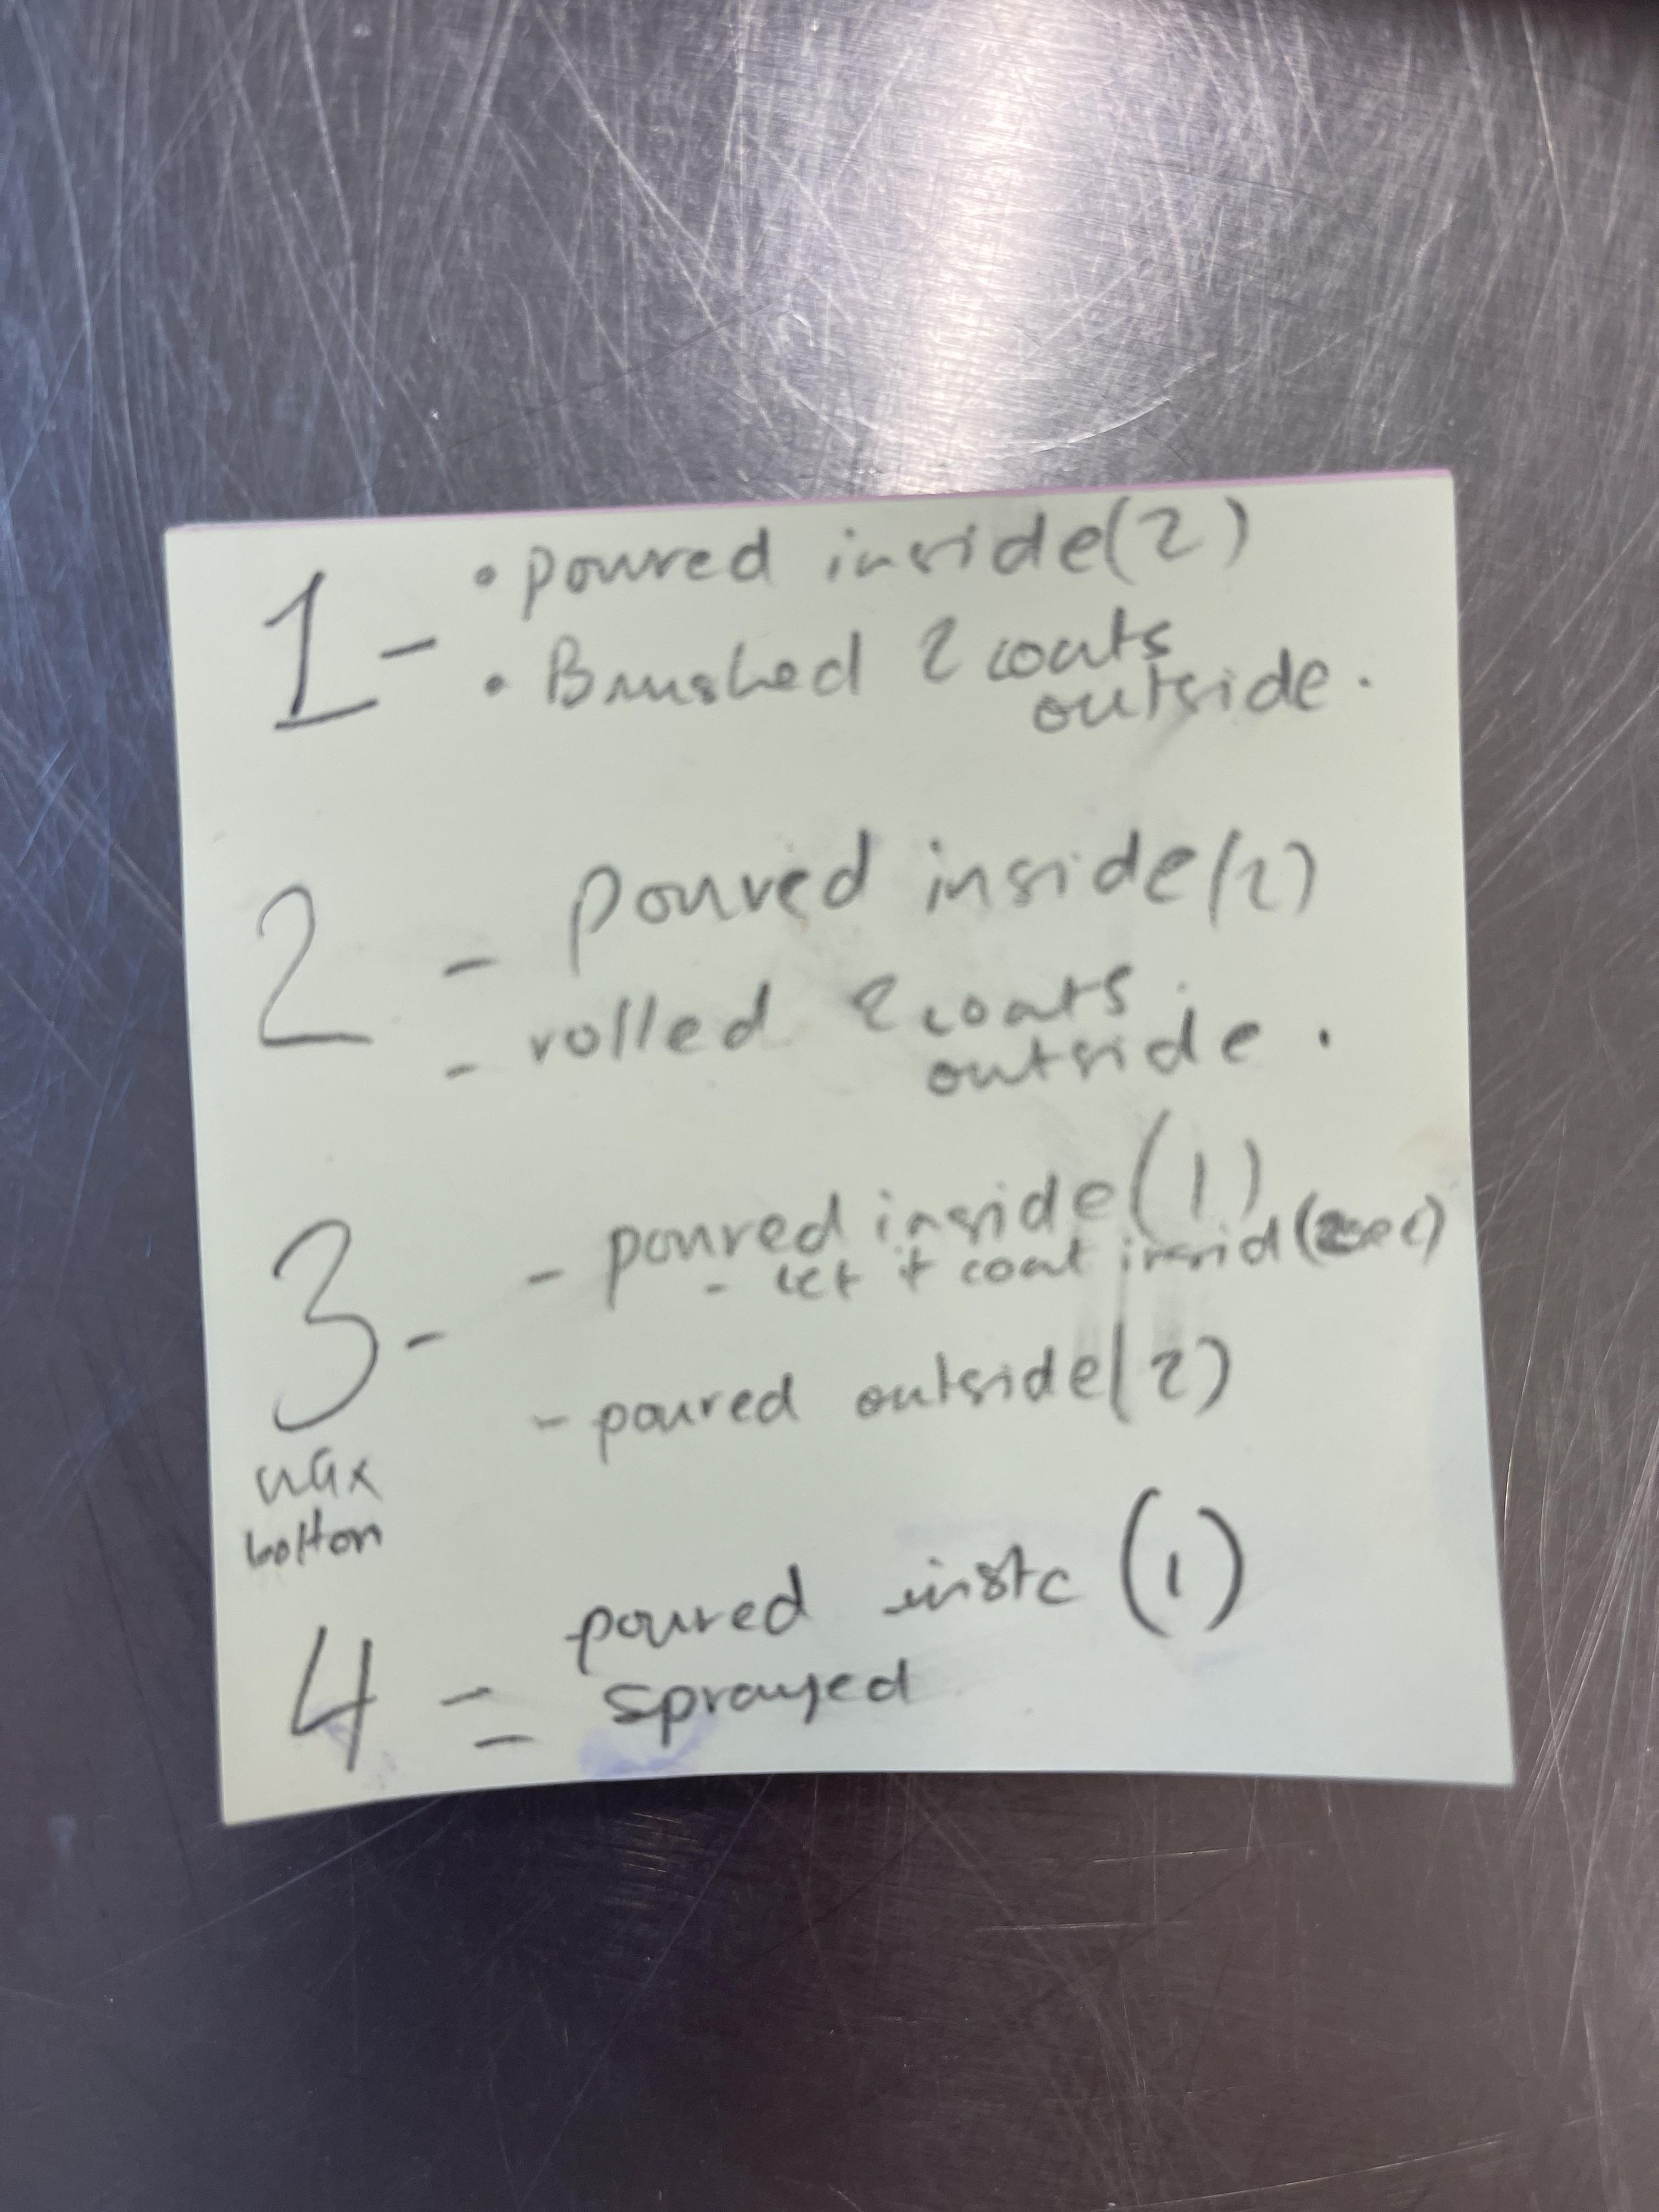 1 - • poured inside (2)
• Brushed 2 coats
outside.
2 - poured inside (2)
- rolled 2 coats
outside.
3 - - poured inside (1)
- let it coat insid
- poured outside (2)
wax
botton
4 - poured (1)
- sprayed